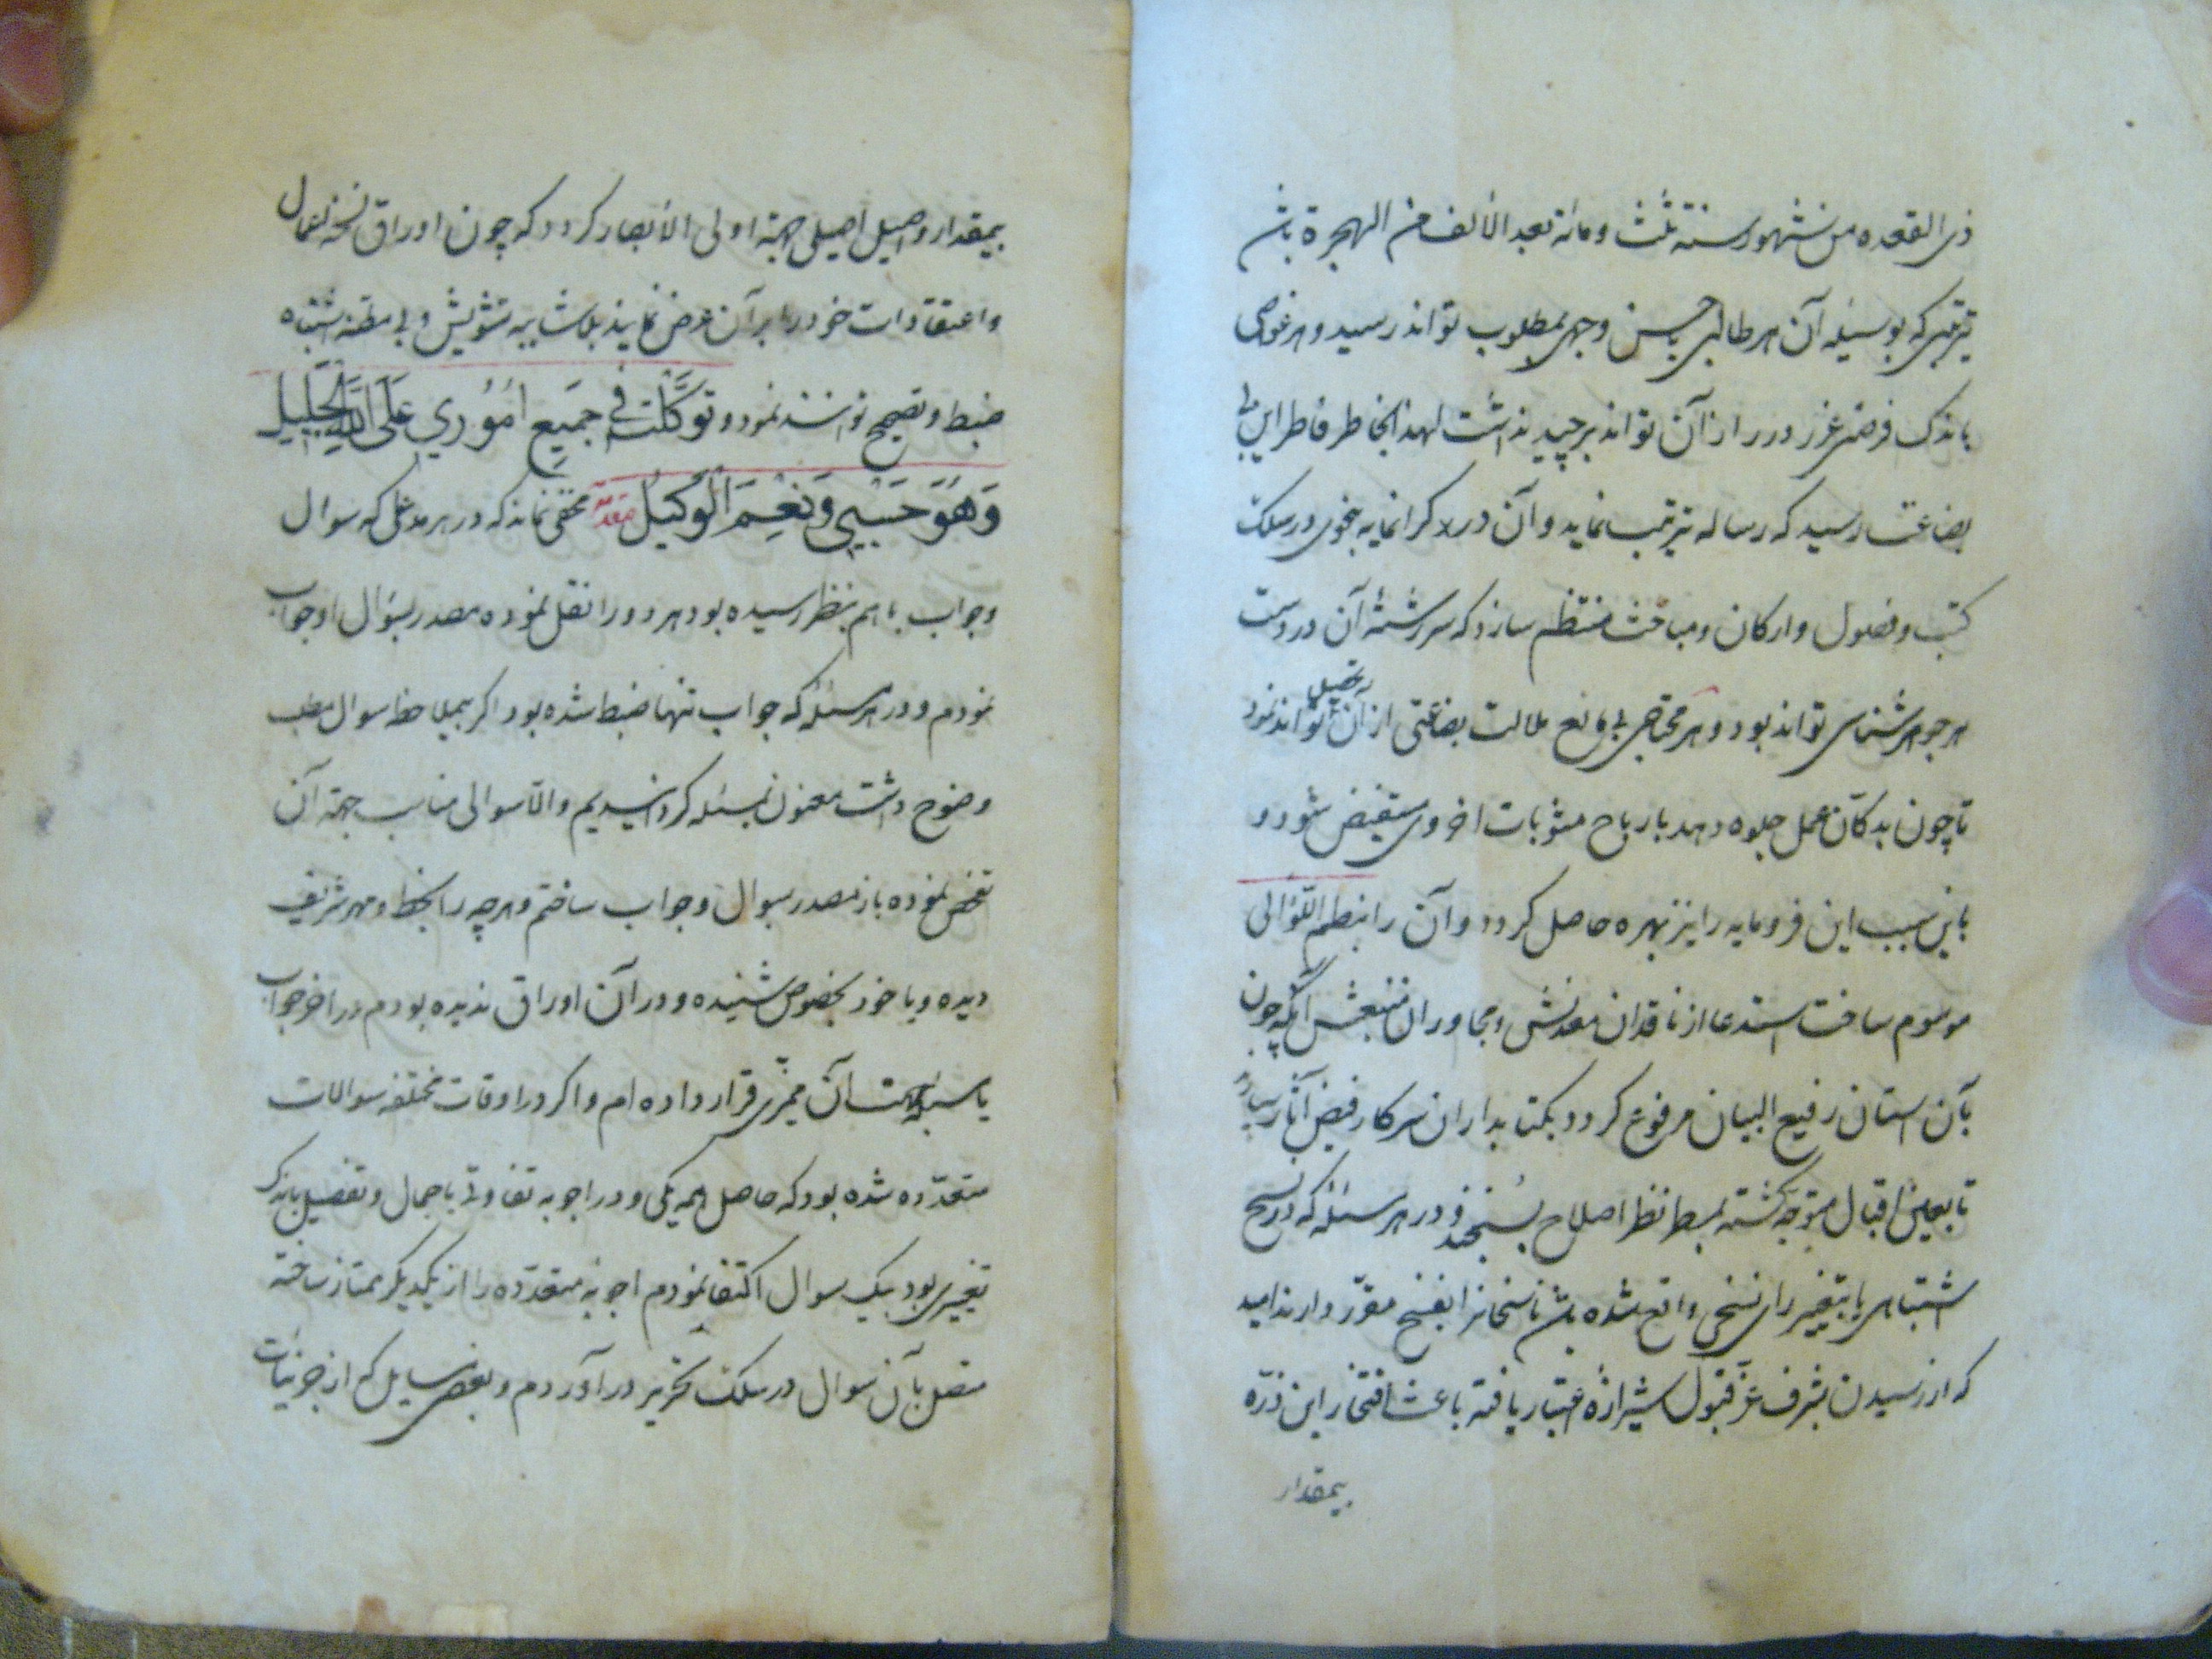 ذی القعده من شهور سنة ثلث و مائة بعد الألف من الهجرة باین
ترتیبی که بوسیله آن هر طالبی باحسن وجهی بمطلوب تواند رسید و هر غواصی
باندک فرصتی غرر درر از آن تواند برچید نداشت لهذا بخاطر فاطر این بی
بضاعت رسید که رساله ترتیب نماید و آن درر گرانمایه بنحوی در سلک
کتب و فصول و ارکان و مباحث منتظم سازد که سررشتهٔ آن در دست
هر جوهرشناسی تواند بود و هر محتاجی بی مانع ملالت بضاعتی از آن تحصیل تواند نمود
تا چون بدکان عمل جلوه دهد بارباح مثوبات اخروی مستفیض شود و
باین سبب این فرومایه را نیز بهره حاصل گردد و آن را بنظم اللئالی
موسوم ساخت استدعا از ناقدان معدنش و مجاوران منبعش آنکه چون
بآن آستان رفیع البیان مرفوع گردد بکتابداران سرکار فیض آثار
تا بعین اقبال متوجه گشته بمیط انظار اصلاح بسنجند و در هر مسئله که در نسخ
اشتباهی یا تغییر رای نسخی واقع شده باشد ناسخانرا بفسخ مقرر دارند امید
که از رسیدن بشرف عز قبول شیرازهٔ اعتبار یافته باعث افتخار این ذره
بیمقدار
بیمقدار و اصیل اصیلی جهة اولی الأبصار گردد که چون اوراق نسخه اعمال
و اعتقادات خود را بر آن عرض نمایند بلا شایبه تشویش و بی مظنه اشتباه
ضبط و تصحیح توانند نمود و توکَّلْتُ فی جَمیعِ اُمُوری عَلَی اللهِ الجَلیلِ
وَهُوَ حَسْبی وَنِعْمَ الْوَکیلُ مقدمه مخفی نماند که در هر مدعائی که سوال
و جواب باهم بنظر رسیده بود هر دو را نقل نموده مصدر بسؤال و جواب
نمودم و در هر مسئله که جواب تنها ضبط شده بود اگر بیملاحظه سوال مطلب
وضوح داشت معنون بمسئله گردانیدیم و الا سوالی مناسب جهة آن
تفحص نموده باز مصدر بسوال و جواب ساختم و هرچه را بخط و مهر شریف
دیده و یا خود بخصوص شنیده و در آن اوراق ندیده بودم در آخر جواب
یا مسئله جهت آن ممیزی قرار داده ام و اگر در اوقات مختلفه سوالات
متعدده شده بود که حاصل همه یکی و در اجوبه تفاوتی باجمال و تفصیل یا اندک
تغییری بود بیک سوال اکتفا نمودم اجوبه متعدده را از یکدیگر ممتاز ساخته
متصل بآن سوال در سلک تحریر درآوردم و بعضی مسایل که از جزئیات